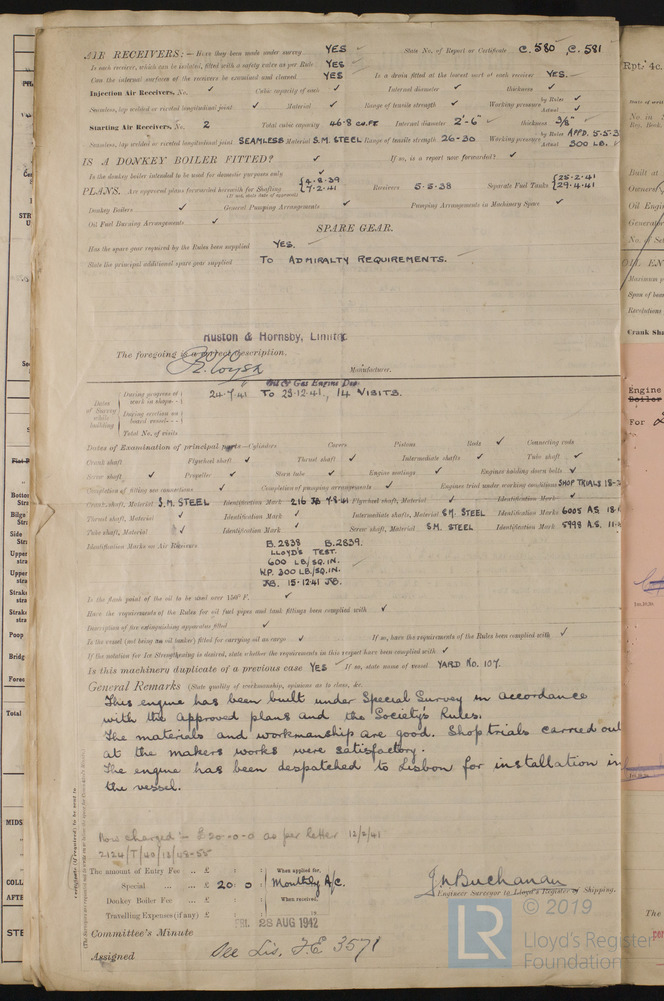 AIR RECEIVERS:— Have they been made under survey YES State No. of Report or Certificate C. 580, C. 581
Is each receiver, which can be isolated, fitted with a safety valve as per Rule YES
Can the internal surfaces of the receivers be examined and cleaned YES Is a drain fitted at the lowest part of each receiver YES.
Injection Air Receivers, No. ✓ Cubic capacity of each ✓ Internal diameter ✓ thickness ✓
Seamless, lap welded or riveted longitudinal joint ✓ Material ✓ Range of tensile strength ✓ Working pressure by Rules ✓ Actual ✓
Starting Air Receivers, No. 2 Total cubic capacity 46.8 CU.FT Internal diameter 2'-6" ✓ thickness 3/8"
Seamless, lap welded or riveted longitudinal joint SEAMLESS Material S.M. STEEL Range of tensile strength 26-30 Working pressure by Rules APPD. 5-5-3 Actual 300 LB.
IS A DONKEY BOILER FITTED? ✓ If so, is a report now forwarded? ✓
Is the donkey boiler intended to be used for domestic purposes only ✓
PLANS. Are approved plans forwarded herewith for Shafting 4-8-39 7-2-41 Receivers 5-5-38 Separate Fuel Tanks 25-2-41 29-4-41
Donkey Boilers ✓ General Pumping Arrangements ✓ Pumping Arrangements in Machinery Space ✓
Oil Fuel Burning Arrangements ✓
SPARE GEAR.
Has the spare gear required by the Rules been supplied YES.
State the principal additional spare gear supplied TO ADMIRALTY REQUIREMENTS.
Ruston & Hornsby, Limited
The foregoing is a correct description.
Manufacturer.
Oil & Gas Engine Dep.
Dates of Survey while building
During progress of work in shops - - 24-7-41 TO 23-12-41, 14 VISITS.
During erection on board vessel - -
Total No. of visits
Dates of Examination of principal parts—Cylinders Covers Pistons Rods ✓ Connecting rods
Crank shaft Flywheel shaft ✓ Thrust shaft ✓ Intermediate shafts ✓ Tube shaft ✓
Screw shaft ✓ Propeller ✓ Stern tube ✓ Engine seatings ✓ Engines holding down bolts ✓
Completion of fitting sea connections ✓ Completion of pumping arrangements ✓ Engines tried under working conditions SHOP TRIALS 18-
Crank shaft, Material S.M. STEEL Identification Mark 216 JB 7-8-41 Flywheel shaft, Material ✓ Identification Mark ✓
Thrust shaft, Material ✓ Identification Mark ✓ Intermediate shafts, Material S.M. STEEL Identification Marks 6005 A.S. 18-
Tube shaft, Material ✓ Identification Mark ✓ Screw shaft, Material S.M. STEEL Identification Mark 5998 A.S. 11-
Identification Marks on Air Receivers B.2838 B.2839.
LLOYD'S TEST.
600 LB/SQ.IN.
W.P. 300 LB./SQ.IN.
JB. 15-12-41 JB.
Is the flash point of the oil to be used over 150° F. ✓
Have the requirements of the Rules for oil fuel pipes and tank fittings been complied with ✓
Description of fire extinguishing apparatus fitted ✓
Is the vessel (not being an oil tanker) fitted for carrying oil as cargo ✓ If so, have the requirements of the Rules been complied with ✓
If the notation for Ice Strengthening is desired, state whether the requirements in this respect have been complied with ✓
Is this machinery duplicate of a previous case YES If so, state name of vessel YARD No. 107.
General Remarks (State quality of workmanship, opinions as to class, &c.
This engine has been built under Special Survey in accordance
with the approved plans and the Society's Rules.
The materials and workmanship are good. Shop trials carried out
at the makers works were satisfactory.
The engine has been despatched to Lisbon for installation in
the vessel.
Now charged:- £20-0-0 as per letter 12/2/41
The amount of Entry Fee .. £ : : When applied for,
Special ... ... £ 20 : 0 : Monthly A/c.
Donkey Boiler Fee ... £ : : When received,
Travelling Expenses (if any) £ : :
J N Buchanan
Engineer Surveyor to Lloyd's Register of Shipping.
Committee's Minute FRI. 28 AUG 1942
Assigned See Lis. F.E 3571
Rpt. 4c.
Built at
Owners
Oil Engin
Generator
No. of S
OIL EN
Maximum p
Span of bea
Revolutions
Crank Sha
Engine
Boiler
For
The
LR
© 2019
Lloyd's Register
Foundation